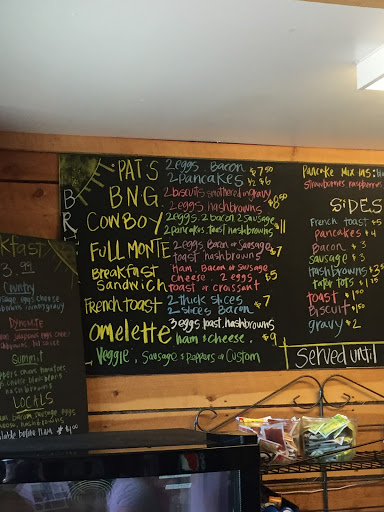 PATS 2 eggs Bacon $7.50
2 Pancakes 1/2 $6
BNG 2 biscuits smothered in gravy
2 eggs hashbrowns $8.50
COWBOY 2 eggs, 2 bacon, 2 sausage
2 pancakes, toast, hashbrowns $11
FULL MONTE 2 eggs, Bacon or Sausage
toast hashbrowns $7
Breakfast Sandwich Ham, Bacon or Sausage
cheese. 2 eggs
toast or croissant $5
French toast 2 thick slices
2 slices Bacon $7
Omelette 3 eggs, toast, hashbrowns
ham & cheese. $9
Veggie, Sausage & Peppers or Custom
Pancake Mix ins:
strawberries raspberries
SiDES
French toast $5
pancakes $4
Bacon $3
sausage $3
Hashbrowns $3
tater tots
toast
Biscuit
gravy $2
Served until
3.99
Country
Dynamite
Summit
LOCALS